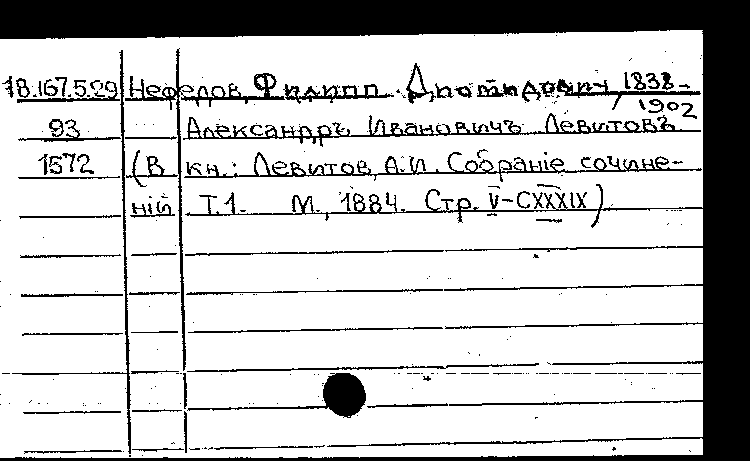 18.167.5.29 Нефедов, Филипп Диомидович, 1838-
1902
93 Александръ Ивановичъ Левитовъ
1572 (В кн.: Левитов, А.И. Собраніе сочине-
ній Т.1. М., 1884. Стр. V-CXXXIX)